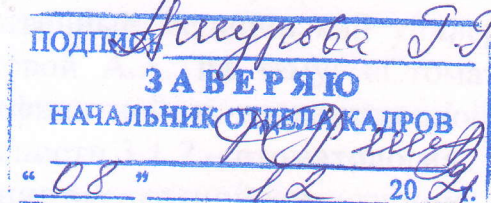 ПОДПИСЬ Ашурова Г.Г
ЗАВЕРЯЮ
НАЧАЛЬНИК ОТДЕЛА КАДРОВ
“ 08 ” 12 20 21.